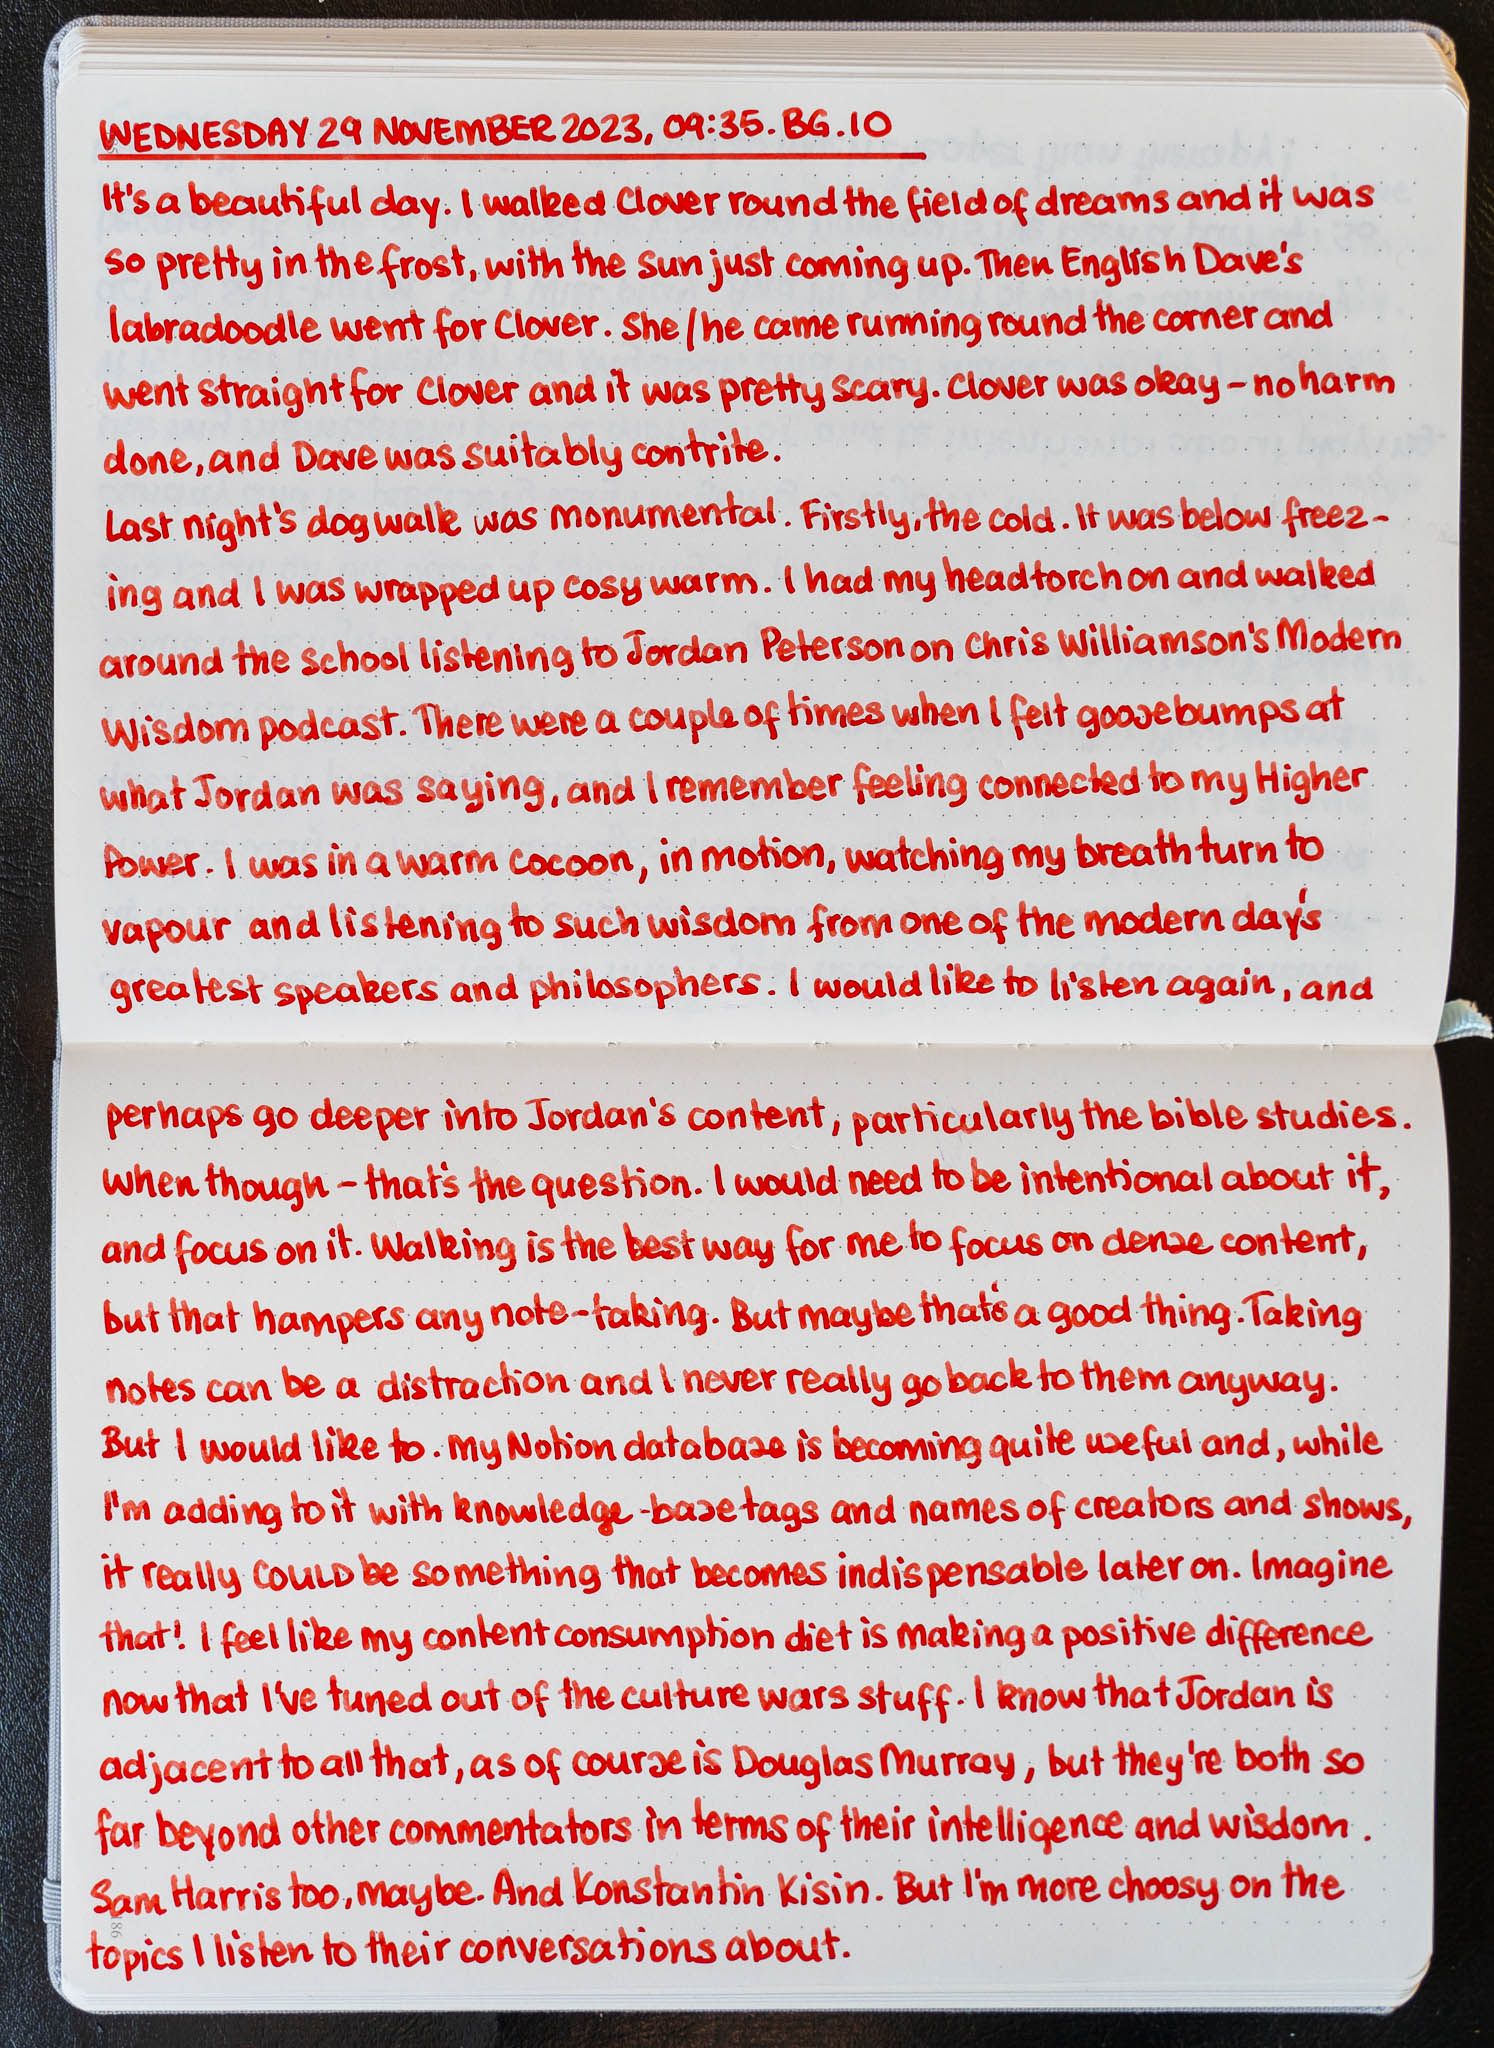 WEDNESDAY 29 NOVEMBER 2023, 09:35. BG.10
It's a beautiful day. I walked Clover round the field of dreams and it was
so pretty in the frost, with the sun just coming up. Then English Dave's
labradoodle went for Clover. She/he came running round the corner and
went straight for Clover and it was pretty scary. Clover was okay – no harm
done, and Dave was suitably contrite.
Last night's dog walk was monumental. Firstly, the cold. It was below freez-
ing and I was wrapped up cosy warm. I had my headtorch on and walked
around the school listening to Jordan Peterson on Chris Williamson's Modern
Wisdom podcast. There were a couple of times when I felt goosebumps at
what Jordan was saying, and I remember feeling connected to my Higher
Power. I was in a warm cocoon, in motion, watching my breath turn to
vapour and listening to such wisdom from one of the modern day's
greatest speakers and philosophers. I would like to listen again, and
perhaps go deeper into Jordan's content, particularly the bible studies.
When though – that's the question. I would need to be intentional about it,
and focus on it. Walking is the best way for me to focus on dense content,
but that hampers any note-taking. But maybe that's a good thing. Taking
notes can be a distraction and I never really go back to them anyway.
But I would like to. My Notion database is becoming quite useful and, while
I'm adding to it with knowledge-base tags and names of creators and shows,
it really COULD be something that becomes indispensable later on. Imagine
that! I feel like my content consumption diet is making a positive difference
now that I've tuned out of the culture wars stuff. I know that Jordan is
adjacent to all that, as of course is Douglas Murray, but they're both so
far beyond other commentators in terms of their intelligence and wisdom.
Sam Harris too, maybe. And Konstantin Kisin. But I'm more choosy on the
topics I listen to their conversations about.
186